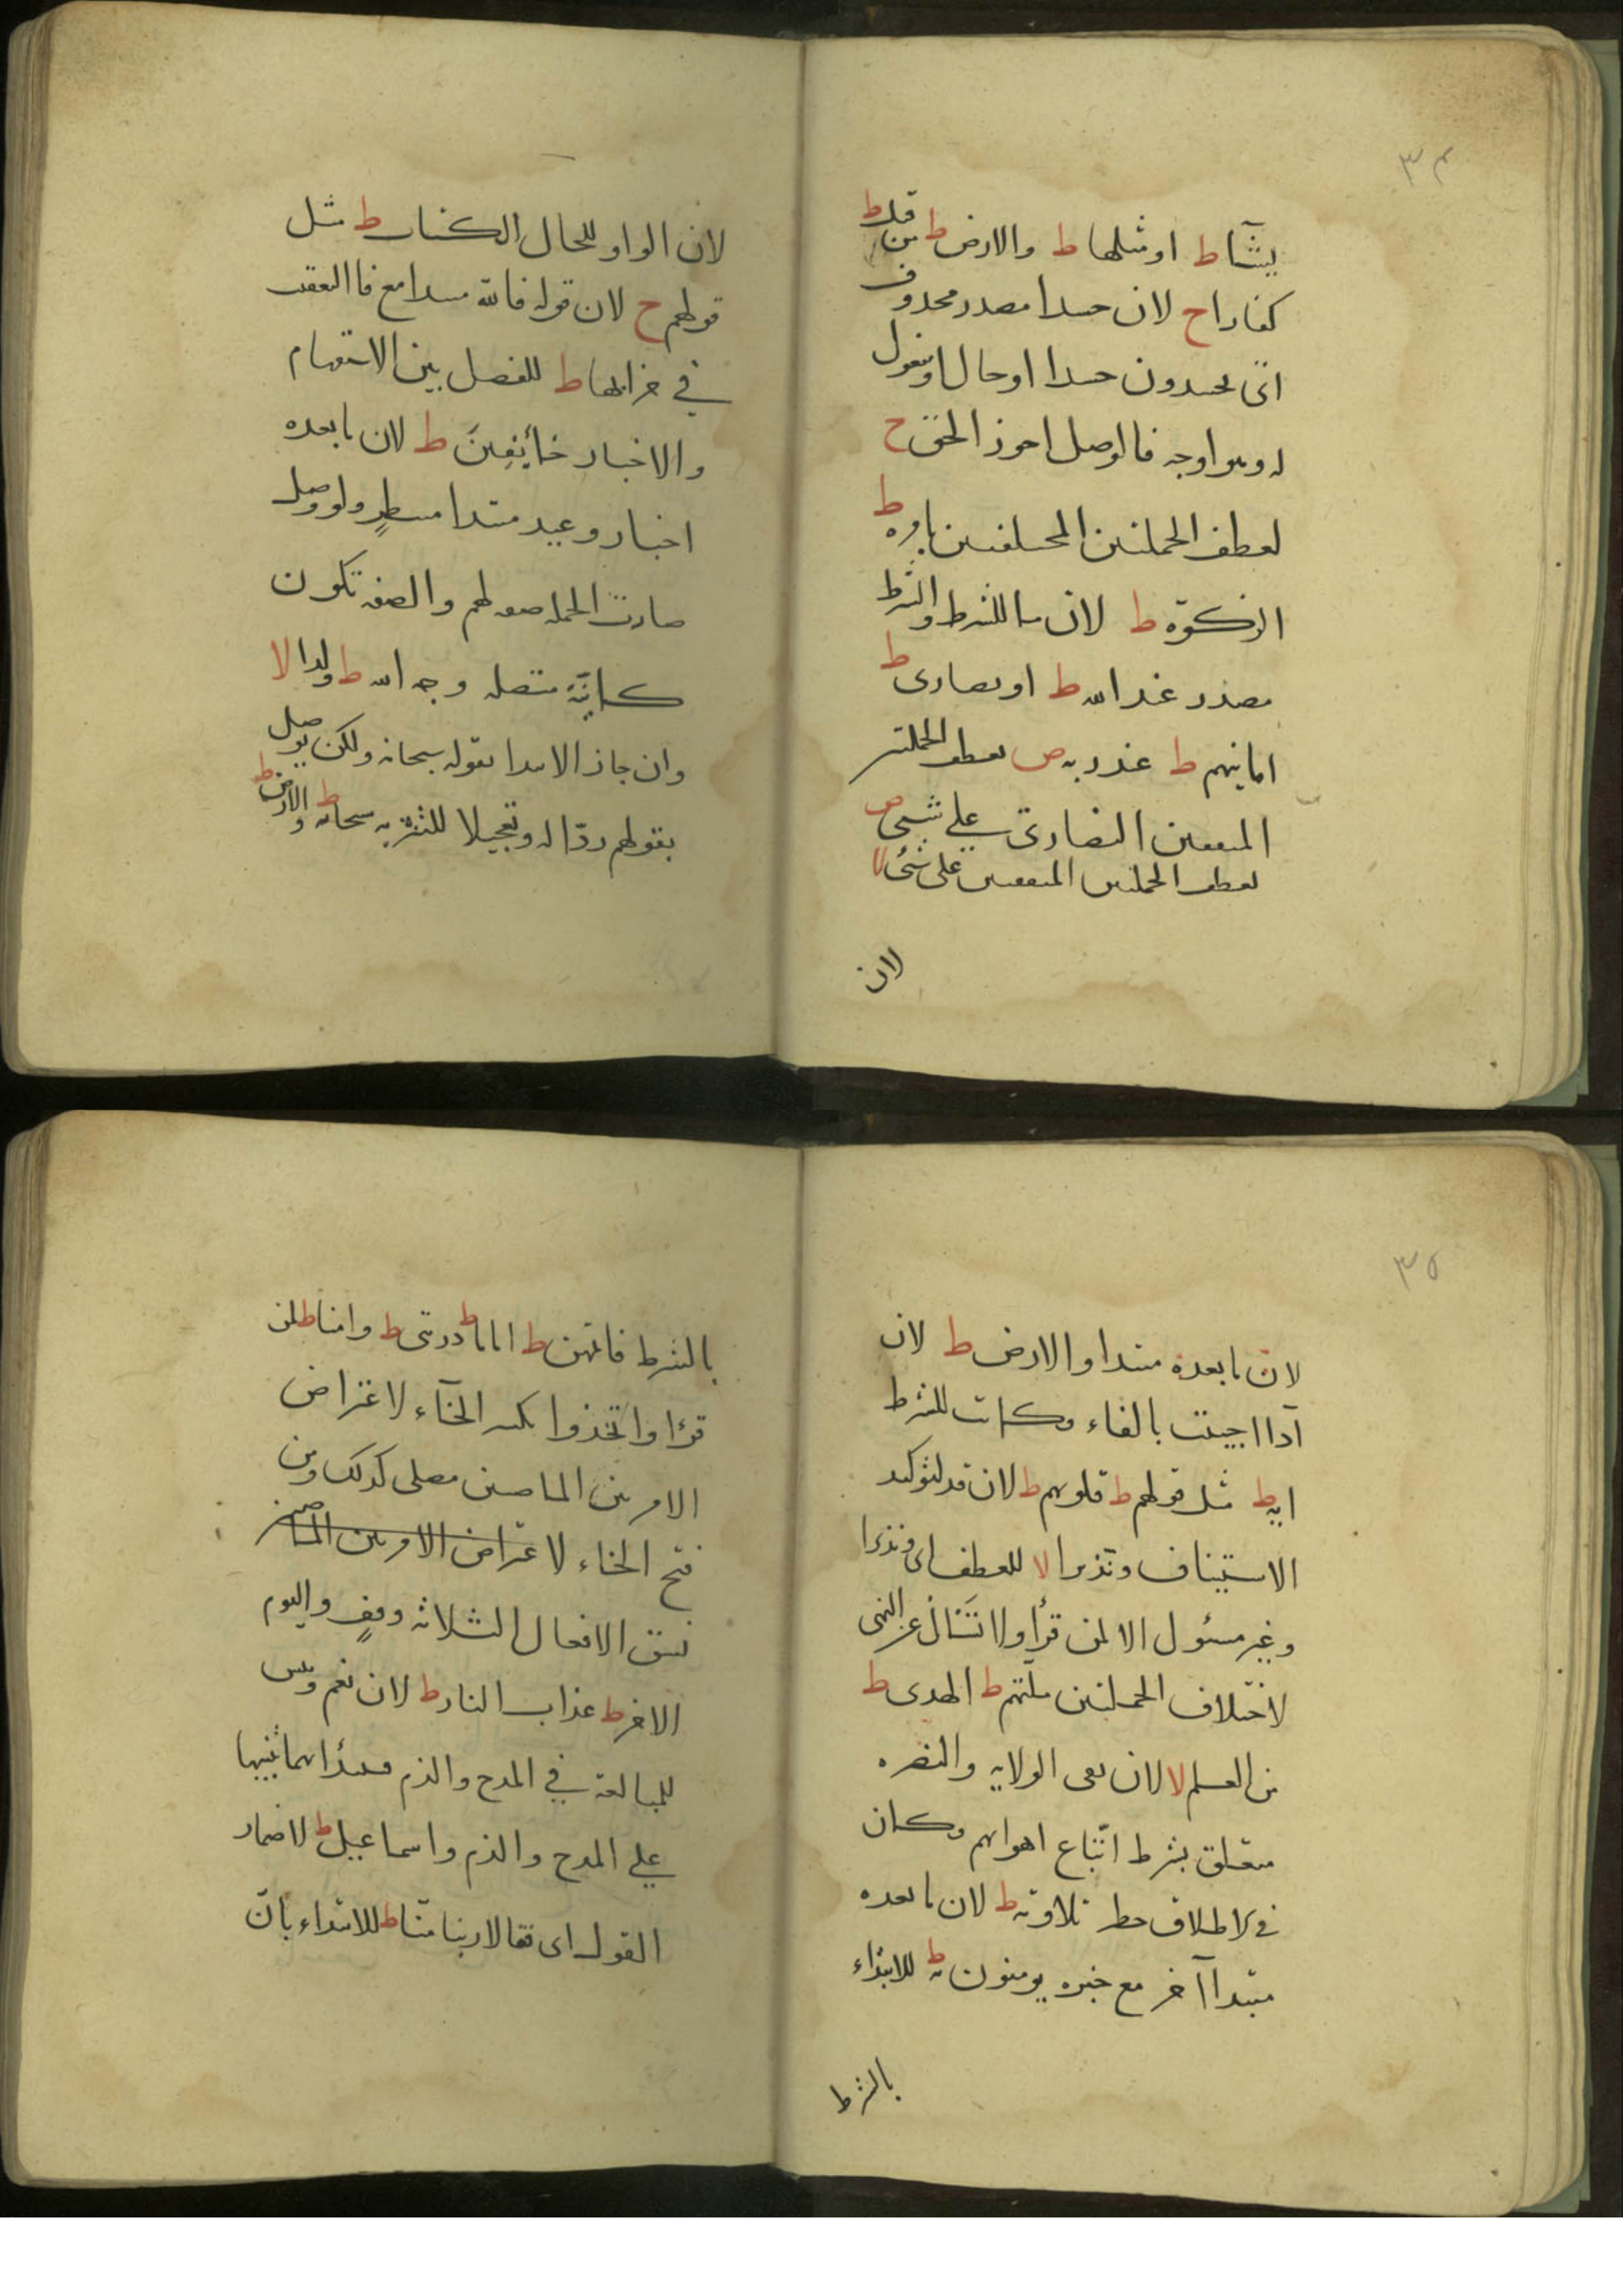 ٣٤
يشآ ط او مثلها ط والارض ط من قبل ط
كفارا ح لان حسدا مصدر محذوف
اى يحسدون حسدا او حال او مفعول
له وهو اوجه فالوصل اجوز الحق ح
لعطف الجملتين المختلفتين بامره ط
الزكوة ط لان ما للشرط والشرط
مصدر عند الله ط او نصارى ط
امانيهم ط عند ربه ص لعطف الجملتين
المتفقتين النصارى على شىء ص
لعطف الجملتين المتفقتين على شئ لا
لان
لان الواو للحال الكتاب ط مثل
قولهم ح لان قوله فالله مبتدا مع فا التعقيب
فى خرابها ط للفصل بين الاستفهام
والاخبار خآئفِينَ ط لان ما بعده
اخبار وعيد مبتدا منتظر ولو وصل
صارت الجملة صفه لهم والصفه تكون
كاينة متصله وجه الله ط ولدا لا
وان جاز الابتدا بقوله سبحانه ولكن يوصل
بقولهم ردّا له وتعجيلا للتنزيه سبحانه ط والارض ط
٣٥
لان ما بعده مبتدا والارض ط لان
اذا اجيبت بالفاء وكانت للشرط
اية ط مثل قولهم ط قلوبهم ط لان قد لتوكيد
الاستيناف ونذيرا لا للعطف اى ونذيرا
وغير مسئول الا لمن قرأ ولا تَسْأل عن النهى
لاختلاف الجملتين ملتهم ط الهدى ط
من العلم لا لان نفى الولايه والنصره
متعلق بشرط اتّباع اهوائهم وكان
فى الاطلاق خطر تلاوته ط لان ما بعده
مبتدا آخر مع خبره يومنون به ط للابتداء
بالشرط
بالشرط فاتمهن ط اماما ط ذريتى ط وامنا ط لمن
قرءا واتخذوا بكسر الخآء لاعتراض
الامر بين الماضيين مصلى كذلك ومن
فتح الخاء لا عتراض الامر بين الماضيين
نسق الافعال الثلاثه وقفٍ واليوم
الاخر ط عذاب النار ط لان نعم وبئس
للمبالغة فى المدح والذم فيبتدا بهما تنبيها
على المدح والذم واسماعيل ط لاضمار
القول اى فقالا ربنا منّا ط للابتداء بانّ